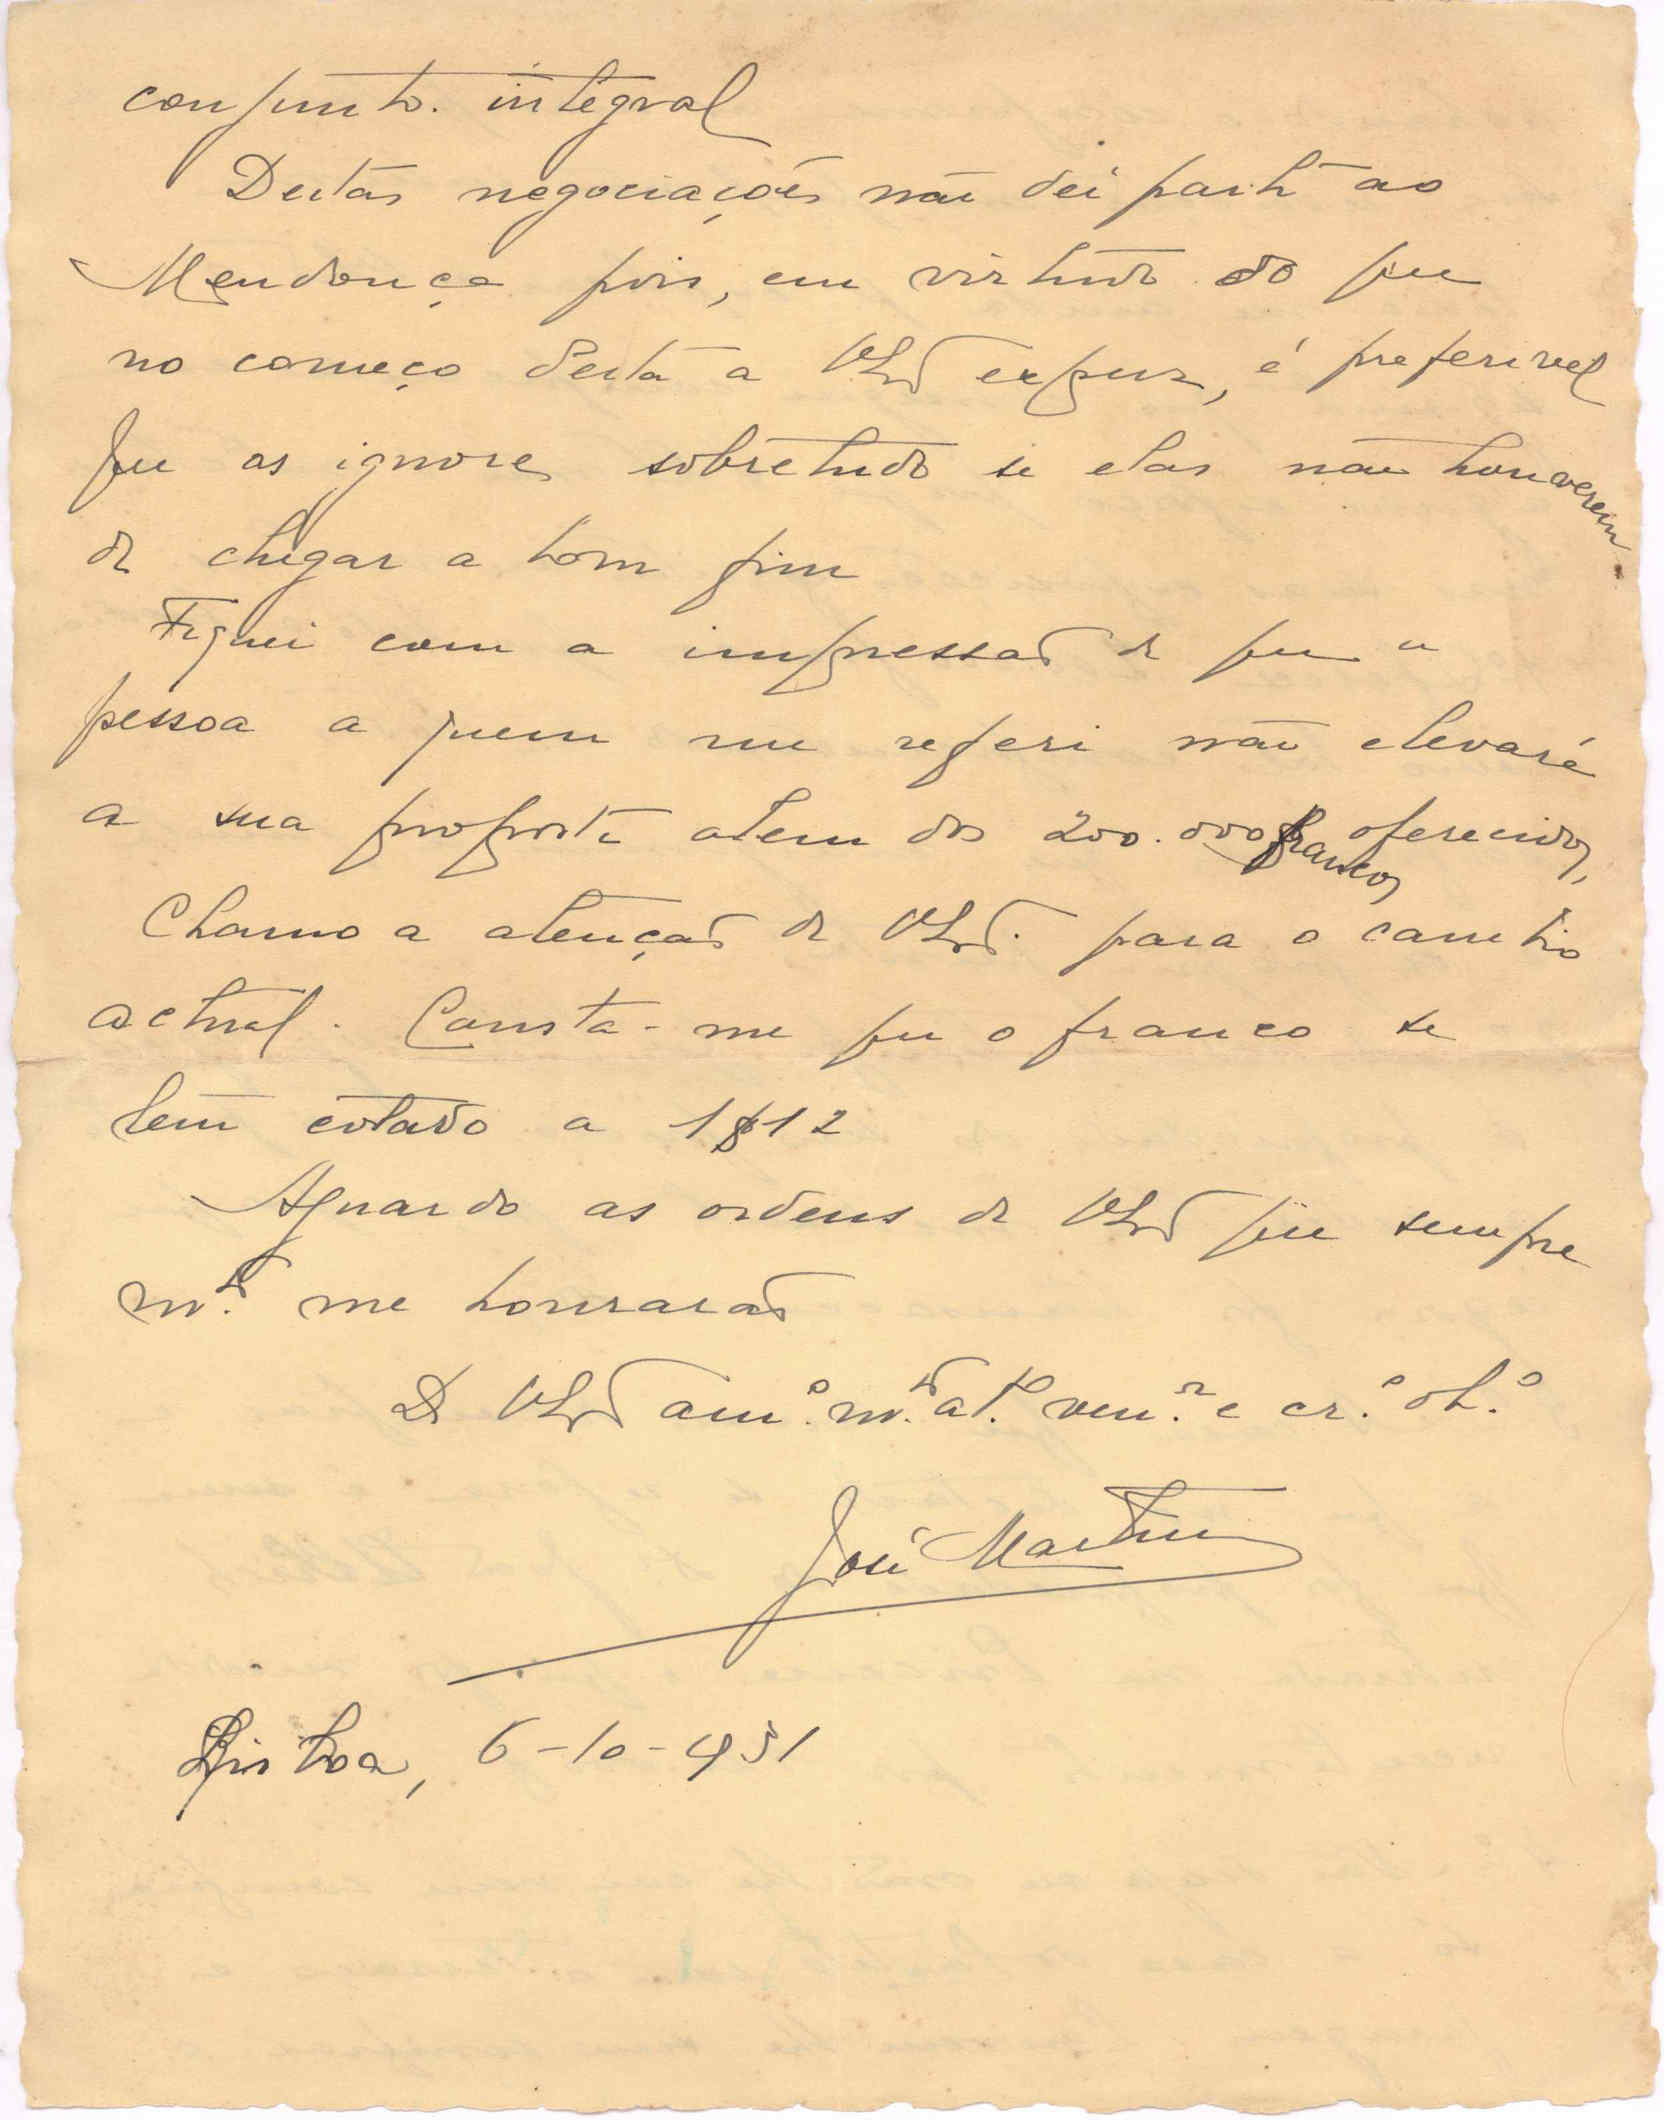 conjunto integral
Destas negociações não dei parte ao
Mendonça pois, em virtude do que
no começo desta a V. Exª expuz, é preferivel
que as ignore, sobretudo se elas não houverem
de chegar a bom fim
Fiquei com a impressão de que a
pessoa a quem me referi não elevará
a sua proposta alem dos 200.000 francos oferecidos,
Chamo a atenção de V. Exª para o cambio
actual. Consta-me que o franco se
tem cotado a 1$12
Aguardo as ordens de V. Exª que sempre
mtº me honrarão
De V. Exª amº. mtº. atº. venr. e crº. obº.
José Martins
Lisboa, 6-10-931